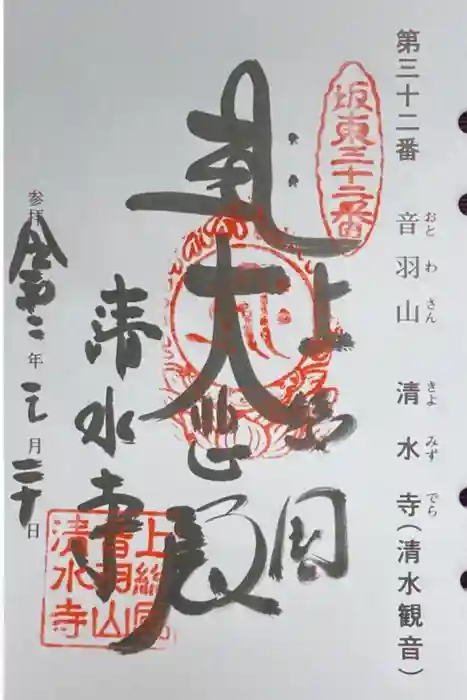 第三十二番 音羽山 清水寺(清水観音)
おとわさん きよみずでら
坂東三十二番
上総国
大悲殿
清水寺
参拝 令和二年 月 日
上総国
音羽山
清水寺